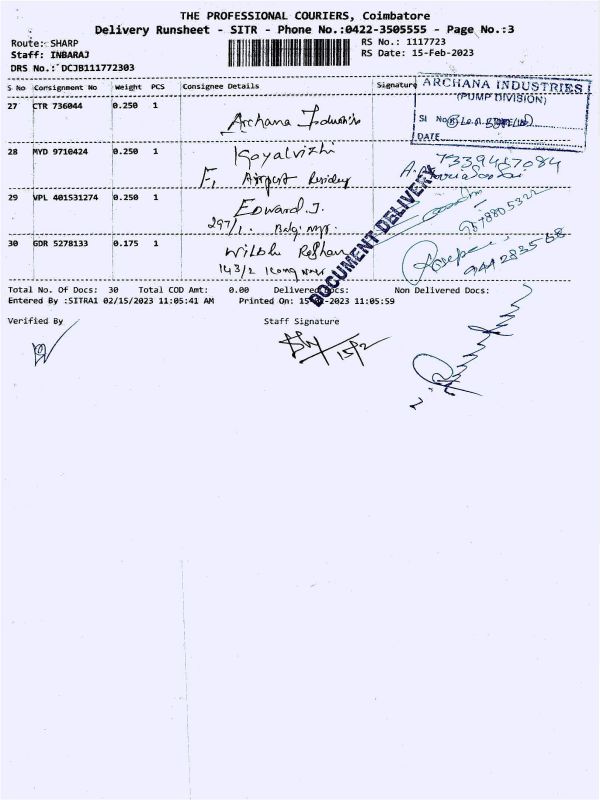 THE PROFESSIONAL COURIERS, Coimbatore
Delivery Runsheet - SITR - Phone No.:0422-3505555 - Page No.:3
Route: SHARP
RS No.: 1117723
Staff: INBARAJ
RS Date: 15-Feb-2023
DRS No.: DCJB111772303
S No Consignment No Weight PCS Consignee Details Signature
ARCHANA INDUSTRIES
(PUMP DIVISION)
SI No
DATE
27 CTR 736044 0.250 1 Archana
28 MYD 9710424 0.250 1
F, Airport
7339457084
29 VPL 401531274 0.250 1 Edward J.
297/1
30 GDR 5278133 0.175 1
143/2
DOCUMENT DELIVERY
Total No. Of Docs: 30 Total COD Amt: 0.00 Delivered Docs: Non Delivered Docs:
Entered By :SITRA1 02/15/2023 11:05:41 AM Printed On: 15- -2023 11:05:59
Verified By Staff Signature
15/2